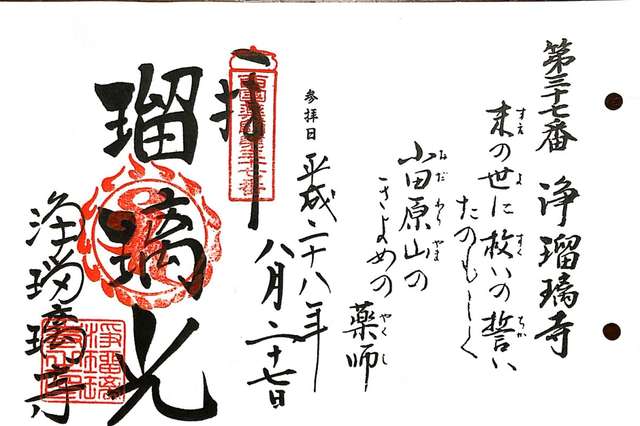 第三十七番 浄瑠璃寺
末の世に救いの誓い
たのもしく
小田原山の
きよめの
薬師
参拝日 平成二十八年
八月二十七日
奉拝
瑠璃光
浄瑠璃寺